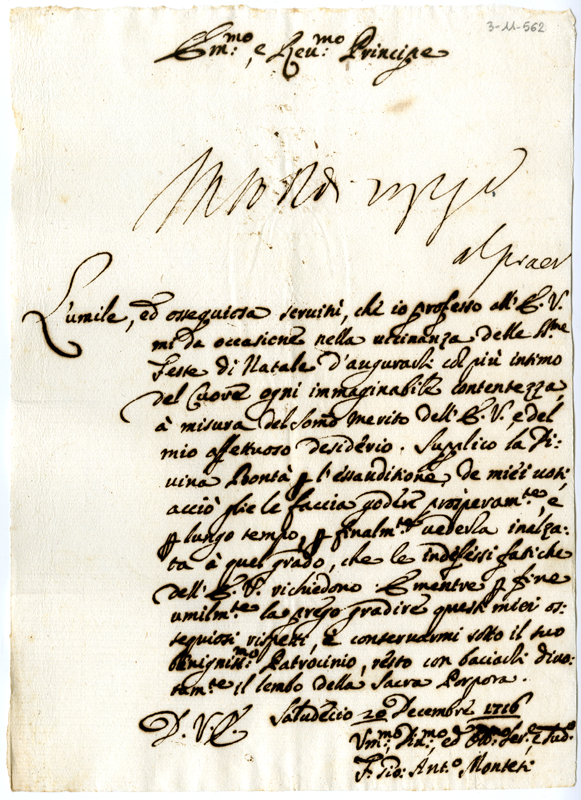 3-11-562
Em:mo, e Reu:mo Principe
L'umile, ed ossequiosa seruitù, che io professo all'E. V.
mi da occasione nella uicinanza delle S.me
Feste di Natale d'augurarli col più intimo
del Cuore ogni immaginabile contentezza,
à misura del Som̃o Merito dell'E. V. e del
mio affettuoso desiderio. Supplico la Di-
uina Bontà p l'essauditione de miei uoti,
acciò glie le faccia godere prosperam.te, e
p lungo tempo, p finalm.te uederla inalza-
ta à quel grado, che le indefessi fatiche
dell'E. V. richiedono. E mentre p fine
umilm.te la prego gradire questi miei os-
sequiosi rispetti, e conseruarmi sotto il suo
benigniss:mo Patrocinio, resto con baciarli diuo-
tam.te il lembo della Sacra Porpora.
D. V. E.
Saludecio 20 Decembre 1716
Um:mo Di:mo, ed Ob:mo Ser.e
F. Gio: Ant.o Monteti